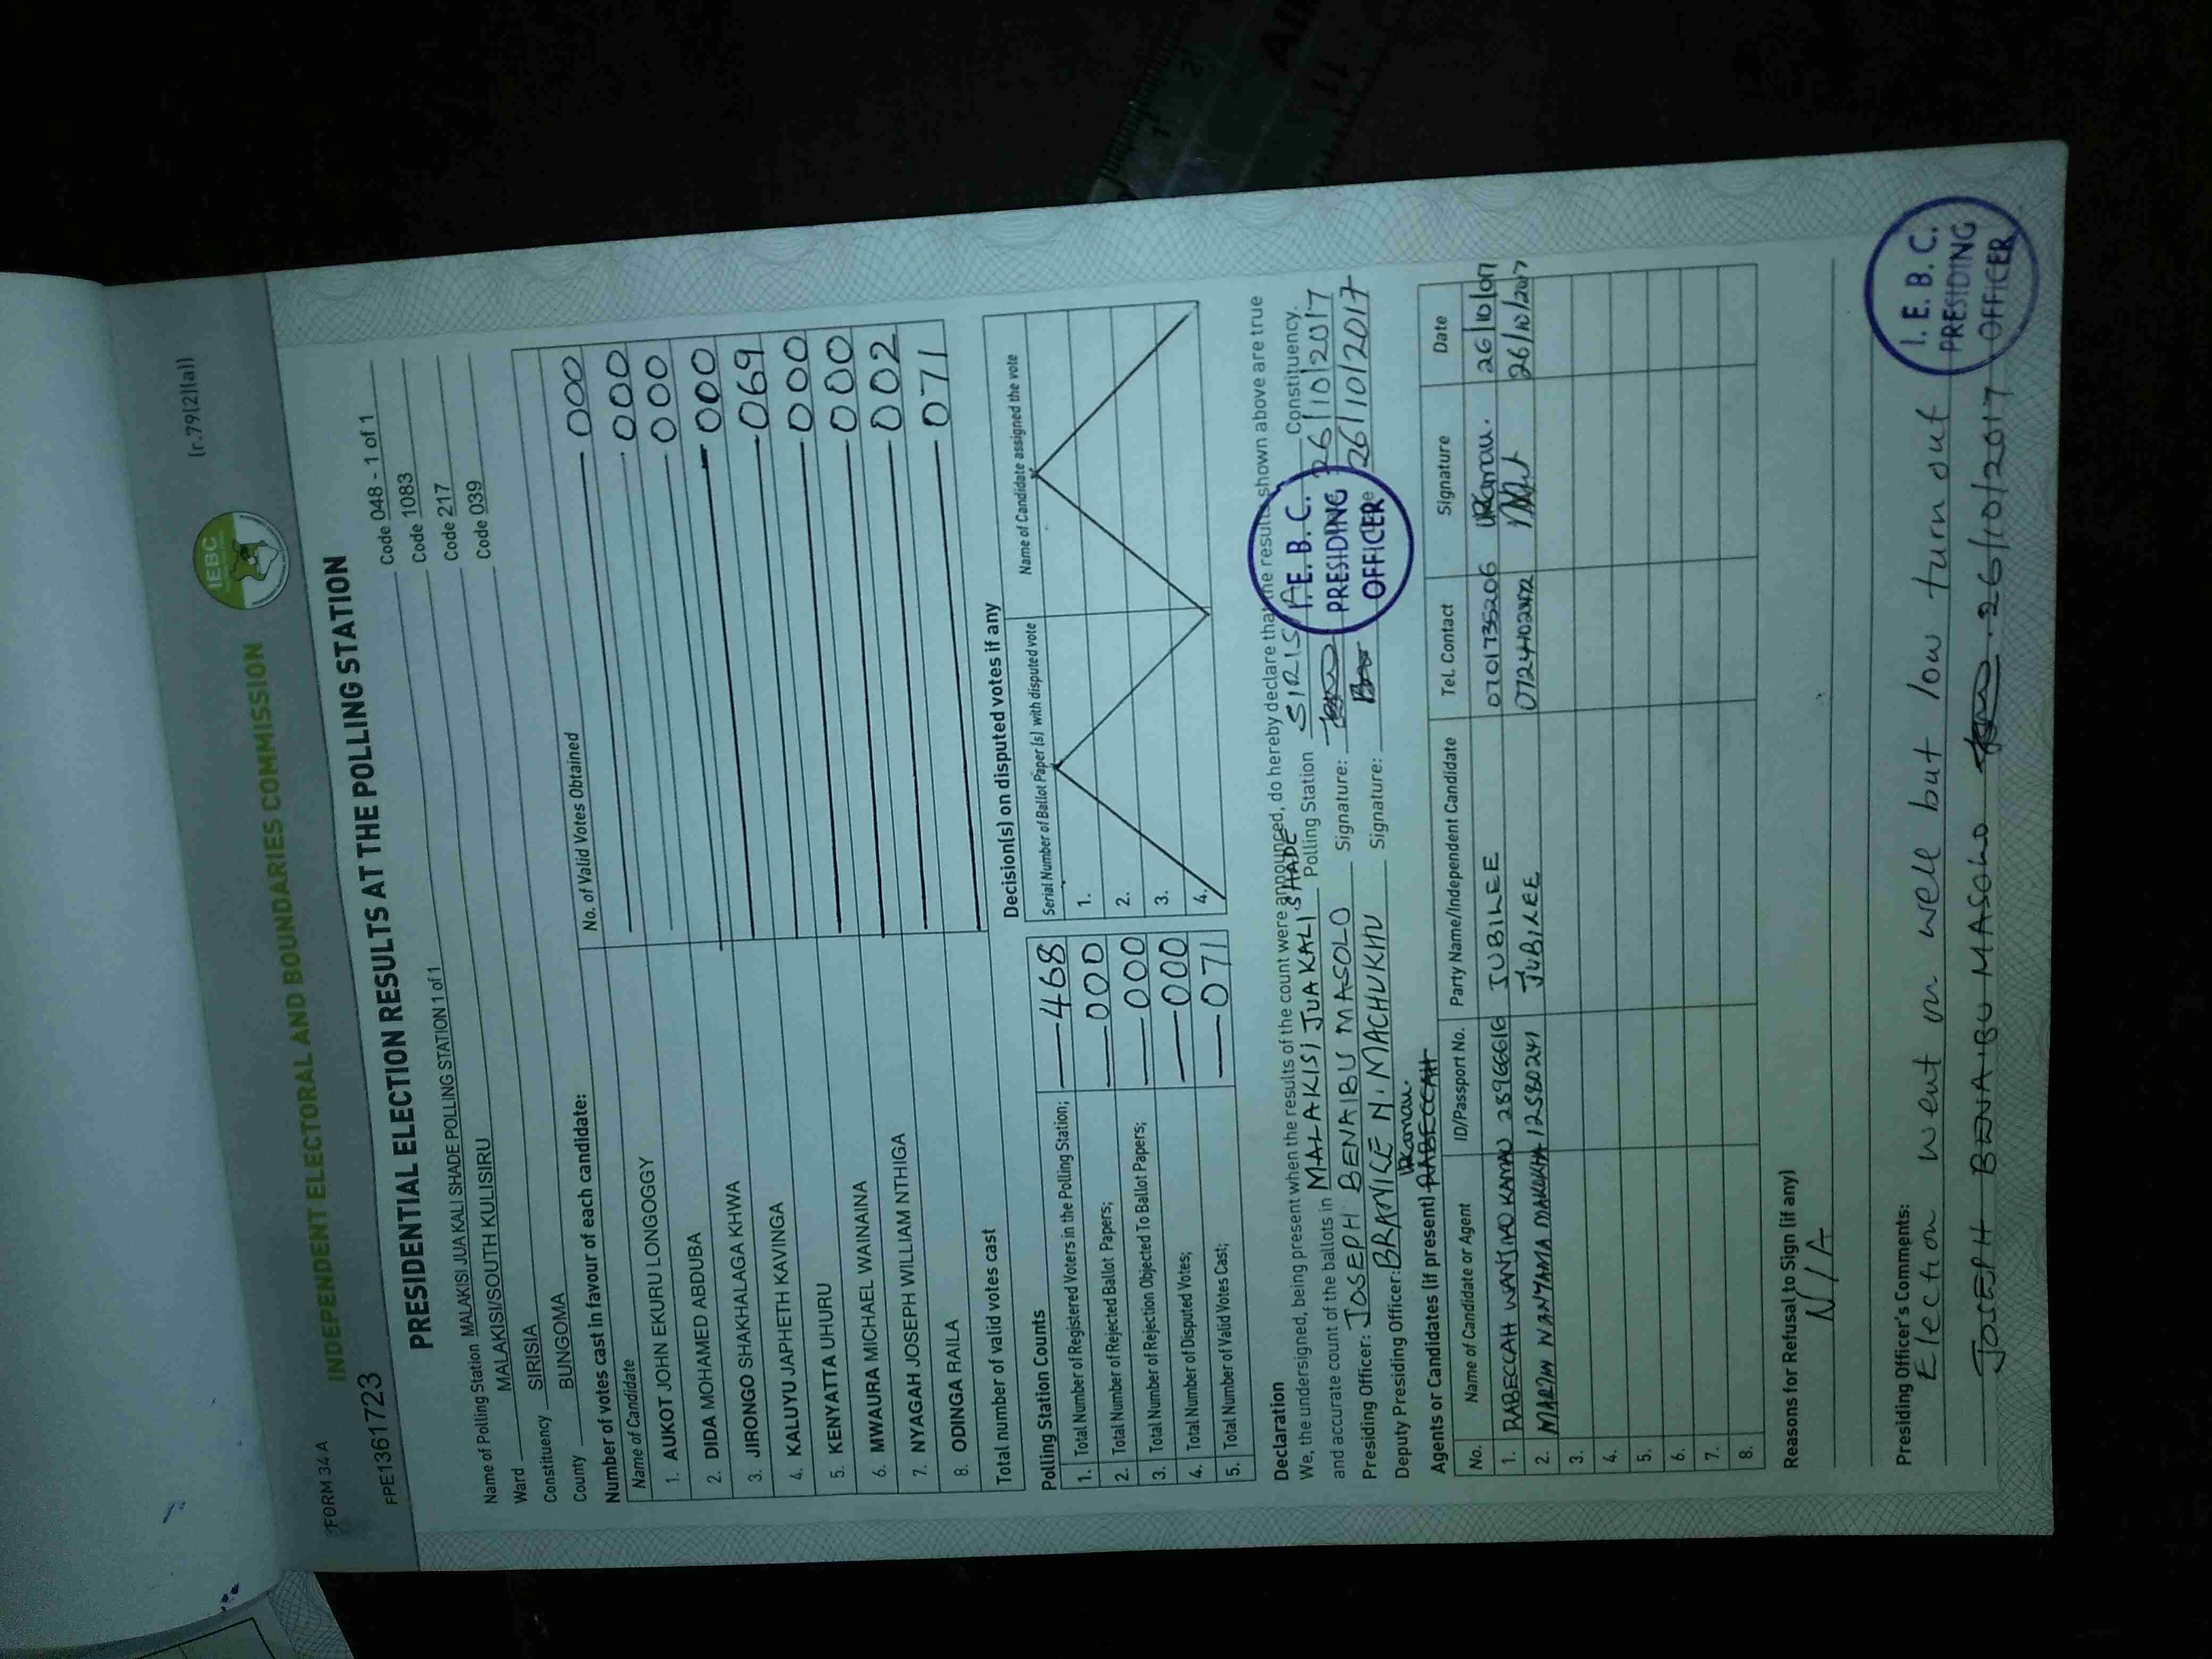 FORM 34A
(r.79(2)(a))
INDEPENDENT ELECTORAL AND BOUNDARIES COMMISSION
IEBC
FPE1361723
PRESIDENTIAL ELECTION RESULTS AT THE POLLING STATION
Name of Polling Station MALAKISI JUA KALI SHADE POLLING STATION 1 of 1 Code 048 - 1 of 1
Ward MALAKISI/SOUTH KULISIRU Code 1083
Constituency SIRISIA Code 217
County BUNGOMA Code 039
Number of votes cast in favour of each candidate:
Name of Candidate No. of Valid Votes Obtained
1. AUKOT JOHN EKURU LONGOGGY 000
2. DIDA MOHAMED ABDUBA 000
3. JIRONGO SHAKHALAGA KHWA 000
4. KALUYU JAPHETH KAVINGA 000
5. KENYATTA UHURU 069
6. MWAURA MICHAEL WAINAINA 000
7. NYAGAH JOSEPH WILLIAM NTHIGA 000
8. ODINGA RAILA 002
Total number of valid votes cast 071
Polling Station Counts
1. Total Number of Registered Voters in the Polling Station; 468
2. Total Number of Rejected Ballot Papers; 000
3. Total Number of Rejection Objected To Ballot Papers; 000
4. Total Number of Disputed Votes; 000
5. Total Number of Valid Votes Cast; 071
Decision(s) on disputed votes if any
Serial Number of Ballot Paper(s) with disputed vote Name of Candidate assigned the vote
1.
2.
3.
4.
Declaration
We, the undersigned, being present when the results of the count were announced, do hereby declare that the results shown above are true
and accurate count of the ballots in MALAKISI JUA KALI SHADE Polling Station SIRISIA Constituency.
Presiding Officer: JOSEPH BENAIBU MASOLO Signature: 26/10/2017
Deputy Presiding Officer: BRANICE N. MACHUKHU Signature: 26/10/2017
I.E.B.C. PRESIDING OFFICER
Agents or Candidates (if present) RABECCAH WKamau.
No. Name of Candidate or Agent ID/Passport No. Party Name/Independent Candidate Tel. Contact Signature Date
1. RABECCAH WANJIKO KAMAU 28966616 JUBILEE 0701735206 WKamau. 26/10/017
2. MARTIN WANYAMA 12580241 JUBILEE 0724402472 26/10/2017
3.
4.
5.
6.
7.
8.
Reasons for Refusal to Sign (if any)
N/A
Presiding Officer's Comments:
Election went on well but low turn out
JOSEPH BENAIBU MASOLO 26/10/2017
I.E.B.C.
PRESIDING
OFFICER